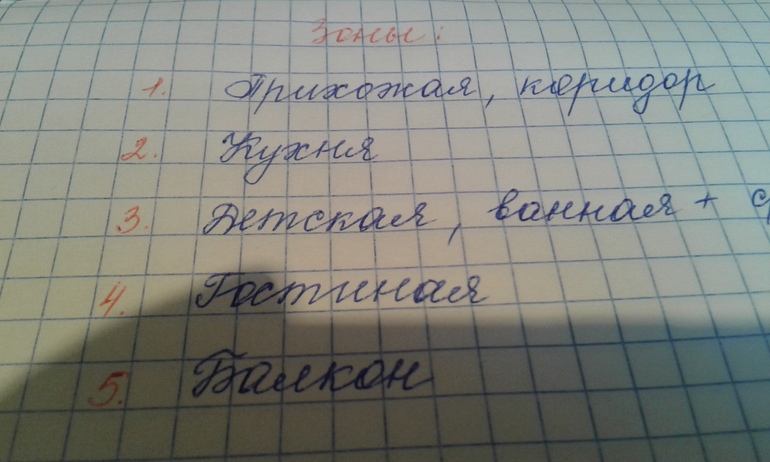 Зоны:
1. Прихожая, коридор
2. Кухня
3. Детская, ванная +
4. Гостиная
5. Балкон